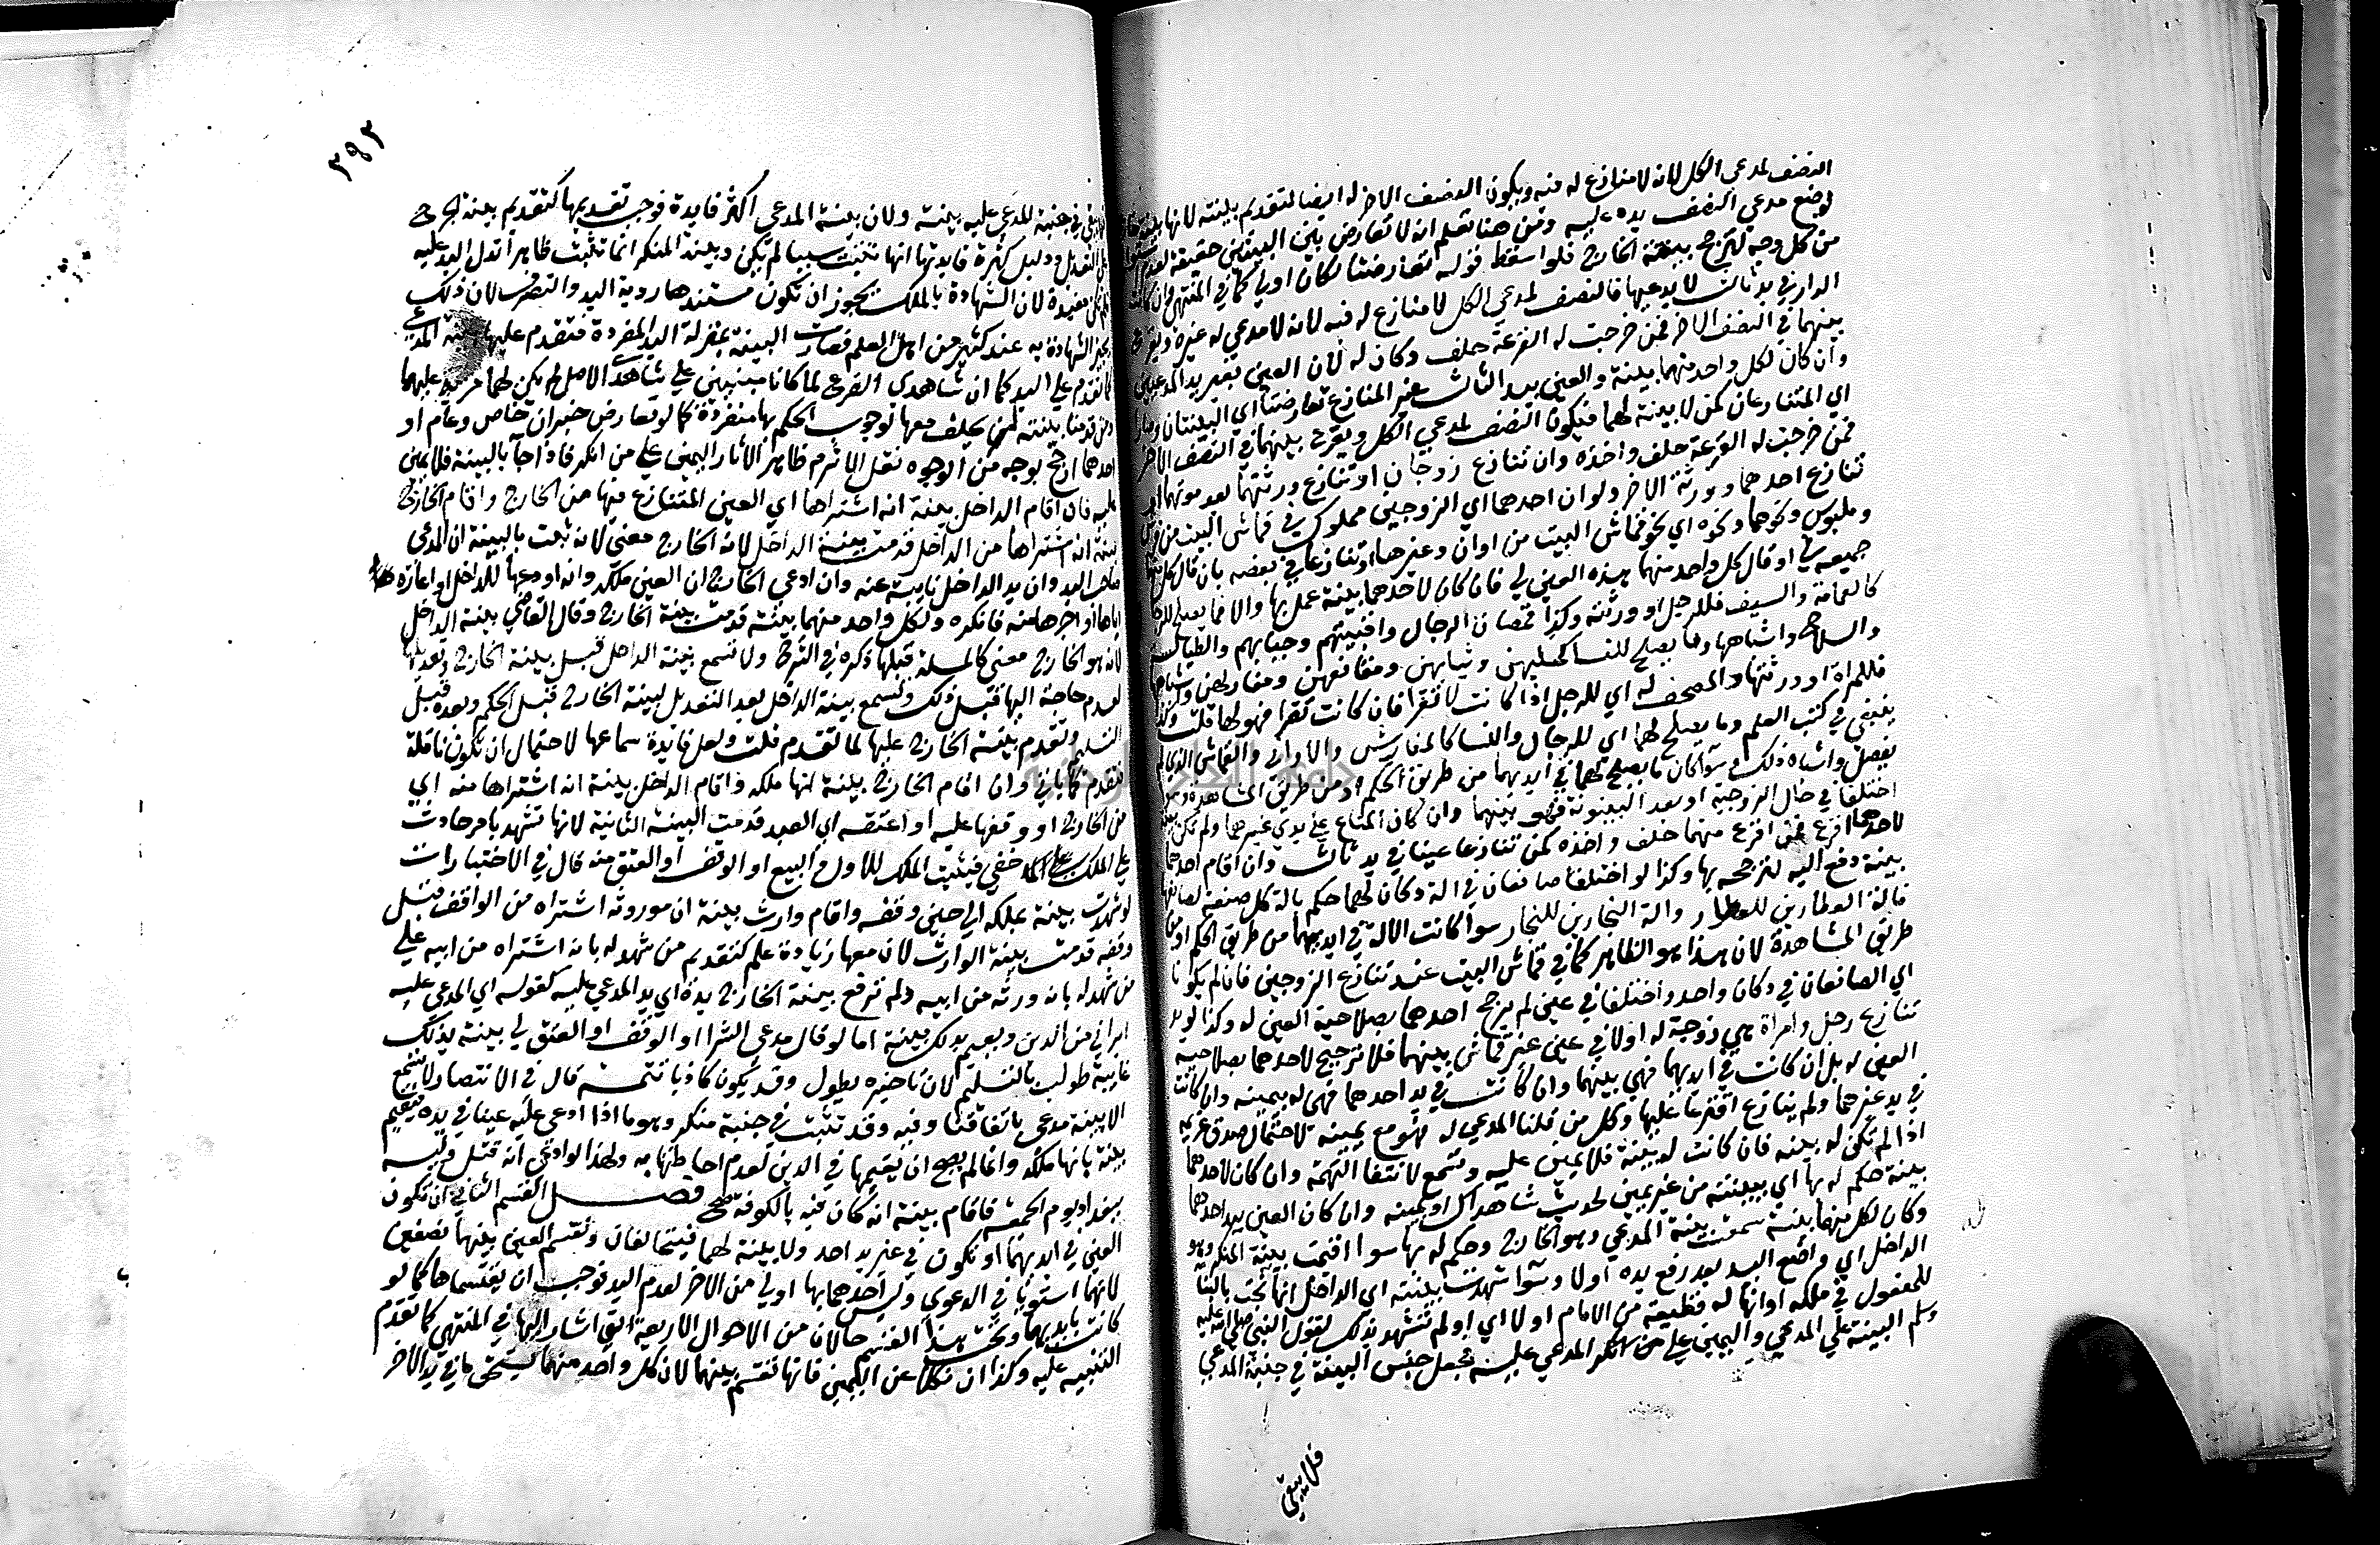 النصف لمدعي الكل لانه لا منازع له فيه ويكون النصف الاخر له ايضا لتقديم بينته لانها بينة
لوضع مدعي النصف يده عليه ومن هنا تعلم انه لا تعارض بين البينتين حقيقة لعدم
من كل وجه لترجح بينة الخارج فلو اسقط قوله تعارضتا لكان اولي كما في المنتهي وان كانت
الدار في يد ثالث لا يدعيها فالنصف لمدعي الكل لا منازع له فيه لانه لا مدعي له غيره ويقرع
بينهما في النصف الاخر فمن خرجت له القرعة حلف وكان له لان العين بغير يد المدعيين
وان كان لكل واحد منهما بينة والعين بيد الثالث غير المنازع تعارضتا اي البينتان وصار
اي المتنازعان كمن لا بينة لهما فيكون النصف لمدعي الكل ويقرع بينهما في النصف الاخر
فمن خرجت له القرعة حلف واخذه وان تنازع زوجان او تنازع ورثتهما بعد موتهما او
تنازع احدهما وورثة الاخر ولو ان احدهما اي الزوجين مملوك في قماش البيت من فرش
وملبوس ونحوهما ونحوه اي نحو قماش البيت من اوان وغيرها او تنازعا في بعضه بان قال كل منهما
جميعه لي او قال كل واحد منهما هذه العين لي فان كان لاحدهما بينة عمل بها والا فما يصلح للرجال
كالعمامة والسيف فللرجل او ورثته وكذا قمصان الرجال واقبيتهم وجبابهم والطيالسة
والسلاح واشباهها وما يصلح للنسا كحليهن وثيابهن ومقانعهن ومغازلهن واشباهها
فللمراة او ورثتها والمصحف له اي للرجل اذا كانت لا تقرا فان كانت تقرا فهو لهما قلت وكذا
ينبغي في كتب العلم وما يصلح لهما اي للرجال والنسا كالمفارش والاواني والقماش الذي لم
يفصل واشباه ذلك سوا كان ما يصلح لهما في ايديهما من طريق الحكم او من طريق المشاهدة وسوا
اختلفا في حال الزوجية او بعد البينونة فهو بينهما وان كان المتاع علي يدي غيرهما ولم تكن بينة
لاحدهما اقرع فمن اقرع منهما حلف واخذه كمن تنازعا عينا في يد ثالث وان اقام احدهما
بينة دفع اليه لترجحه بها وكذا لو اختلفا صانعان في الة دكان لهما حكم بالة كل صنعة لصانعها
فالة العطارين للعطار والة النجارين للنجار سوا كانت الالة في ايديهما من طريق الحكم او من
طريق المشاهدة لان هذا هو الظاهر كما في قماش البيت عند تنازع الزوجين فان لم يكونا
اي الصانعان في دكان واحد واختلفا في عين لم يرجح احدهما بصلاحية العين له وكذا لو
تنازع رجل وامراة هي زوجة له اولا في عين غير قماش بينهما فلا ترجيح لاحدهما بصلاحية
العين له بل ان كانت في ايديهما فهي بينهما وان كانت في يد احدهما فهي له بيمينه وان كانت
في يد غيرهما ولم ينازع اقترعا عليها وكل من قلنا المدعي له فهو مع يمينه لاحتمال صدق غريمه
اذا لم تكن له بينة فان كانت له بينة فلا يمين عليه وتسمع لانتفا التهمة وان كان لاحدهما
بينة حكم له بها اي ببينته من غير يمين لحديث شاهداك او يمينه وان كان العين بيد احدهما
وكان لكل منهما بينة سمعت بينة المدعي وهو الخارج وحكم له بها سوا اقيمت بينة المنكر وهو
الداخل اي واضع اليد بعد رفع يده اولا وسوا شهدت بينته اي الداخل انها نتجت بالبنا
للمفعول في ملكه او انها له قطيعة من الامام اولا اي او لم تشهد بذلك لقول النبي صلى الله عليه
وسلم البينة علي المدعي واليمين علي من انكر المدعي عليه فجعل جنس البينة في جنبة المدعي
فلا يبقي
٣٩٢
في جنبة المدعي عليه بينة ولان بينة المدعي اكثر فايدة فوجب تقديمها كتقديم بينة الجرح
علي التعديل ودليل كثرة فايدتها انها تثبت سببا لم يكن وبينة المنكر انما تثبت ظاهرا تدل اليد عليه
فلم تكن مفيدة لان الشهادة بالملك يجوز ان تكون مستندها روية اليد والتصرف لان ذلك
يجيز الشهادة به عند كثير من اهل العلم فصارت البينة بمنزلة اليد المفردة فتقدم عليها بينة المدعي
كما تقدم علي اليد كما ان شاهدي الفرع لما كانا مبنيين علي شاهدي الاصل لم يكن لهما مزية عليهما
ومن قدمنا بينته لم يحلف معها لوجوب الحكم بها منفردة كما لو تعارض خبران خاص وعام او
احدهما ارجح بوجه من الوجوه نقل الاثرم ظاهر الاثار اليمين علي من انكر فاذا جا بالبينة فلا يمين
عليه فان اقام الداخل بينة انه اشتراها اي العين المتنازع فيها من الخارج واقام الخارج
بينة انه اشتراها من الداخل قدمت بينة الداخل لانه الخارج معني لانه ثبت بالبينة ان المدعي
صاحب اليد وان يد الداخل نايبة عنه وان ادعي الخارج ان العين ملكه وانه اودعها للداخل او اعاره
اياها او اجرها منه فانكره ولكل واحد منهما بينة قدمت بينة الخارج وقال القاضي بينة الداخل
لانه هو الخارج معني كالمسلة قبلها ذكره في الشرح ولا تسمع بينة الداخل قبل بينة الخارج وتعديلها
لعدم حاجة اليها قبل ذلك وتسمع بينة الداخل بعد التعديل لبينة الخارج قبل الحكم وبعده قبل
التسليم وتقدم بينة الخارج عليها لما تقدم قلت ولعل فايدة سماعها لاحتمال ان تكون ناقلة
فتقدم كما ياتي وان اقام الخارج بينة انها ملكه واقام الداخل بينة انه اشتراها منه اي
من الخارج او وقفها عليه او اعتقه اي العبد قدمت البينة الثانية لانها تشهد بامر حادث
علي الملك خفي فيثبت الملك للاول والبيع او الوقف او العتق منه قال في الاختيارات
لو شهدت بينة بملكه الي حين وقفه واقام وارث بينة ان موروثه اشتراه من الواقف قبل
وقفه قدمت بينة الوارث لان معها زيادة علم كتقديم من شهد له بانه اشتراه من ابيه علي
من شهد له بانه ورثه من ابيه ولم ترفع بينة الخارج يده اي يد المدعي عليه كقوله اي المدعي عليه
ابراني من الدين ويقيم بذلك بينة اما لو قال مدعي الشرا او الوقف او العتق لي بينة بذلك
غايبة طولب بالتسليم لان تاخيره يطول وقد يكون كاذبا تتمة قال في الانتصار لا تسمع
الا بينة مدعي باتفاقنا وفيه وقد تثبت في جنبة منكر وهو ما اذا ادعي عليه عينا في يده فيقيم
بينة بانها ملكه وانما لم يصح ان يقيمها في الدين لعدم احاطتها به ولهذا لو ادعي انه قتل وليه
ببغداد يوم الجمعة فاقام بينة انه كان فيه بالكوفة صح فصل القسم الثاني ان تكون
العين في ايديهما او تكون في غير يد احد ولا بينة لهما فيتحالفان وتقسم العين بينهما نصفين
لانهما استويا في الدعوي وليس احدهما بها اولي من الاخر لعدم اليد فوجب ان يقتسماها كما لو
كانت بايديهما وتحت هذا القسم حالان من الاحوال الاربعة التي اشار اليها في المنتهي كما تقدم
التنبيه عليه وكذا ان نكلا عن اليمين فانها تقسم بينهما لان كل واحد منهما يستحق ما في يد الاخر